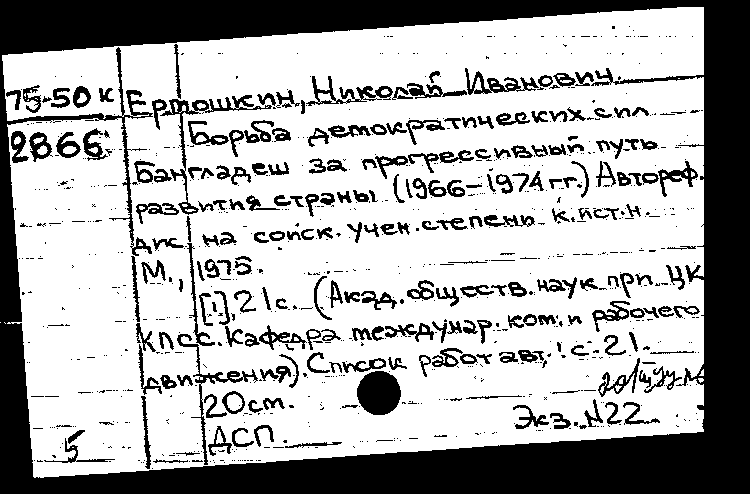 75-50к Ермошкин, Николай Иванович.
2866 Борьба демократических сил
Бангладеш за прогрессивный путь
развития страны (1966-1974 гг.) Автореф.
дис. на соиск. учен. степени к. ист. н.
М., 1975.
[1], 21 с. (Акад. обществ. наук при ЦК
КПСС. Кафедра междунар. ком. и рабочего
движения). Список работ авт.: с. 21.
20 см.
Экз. N22
5 ДСП.